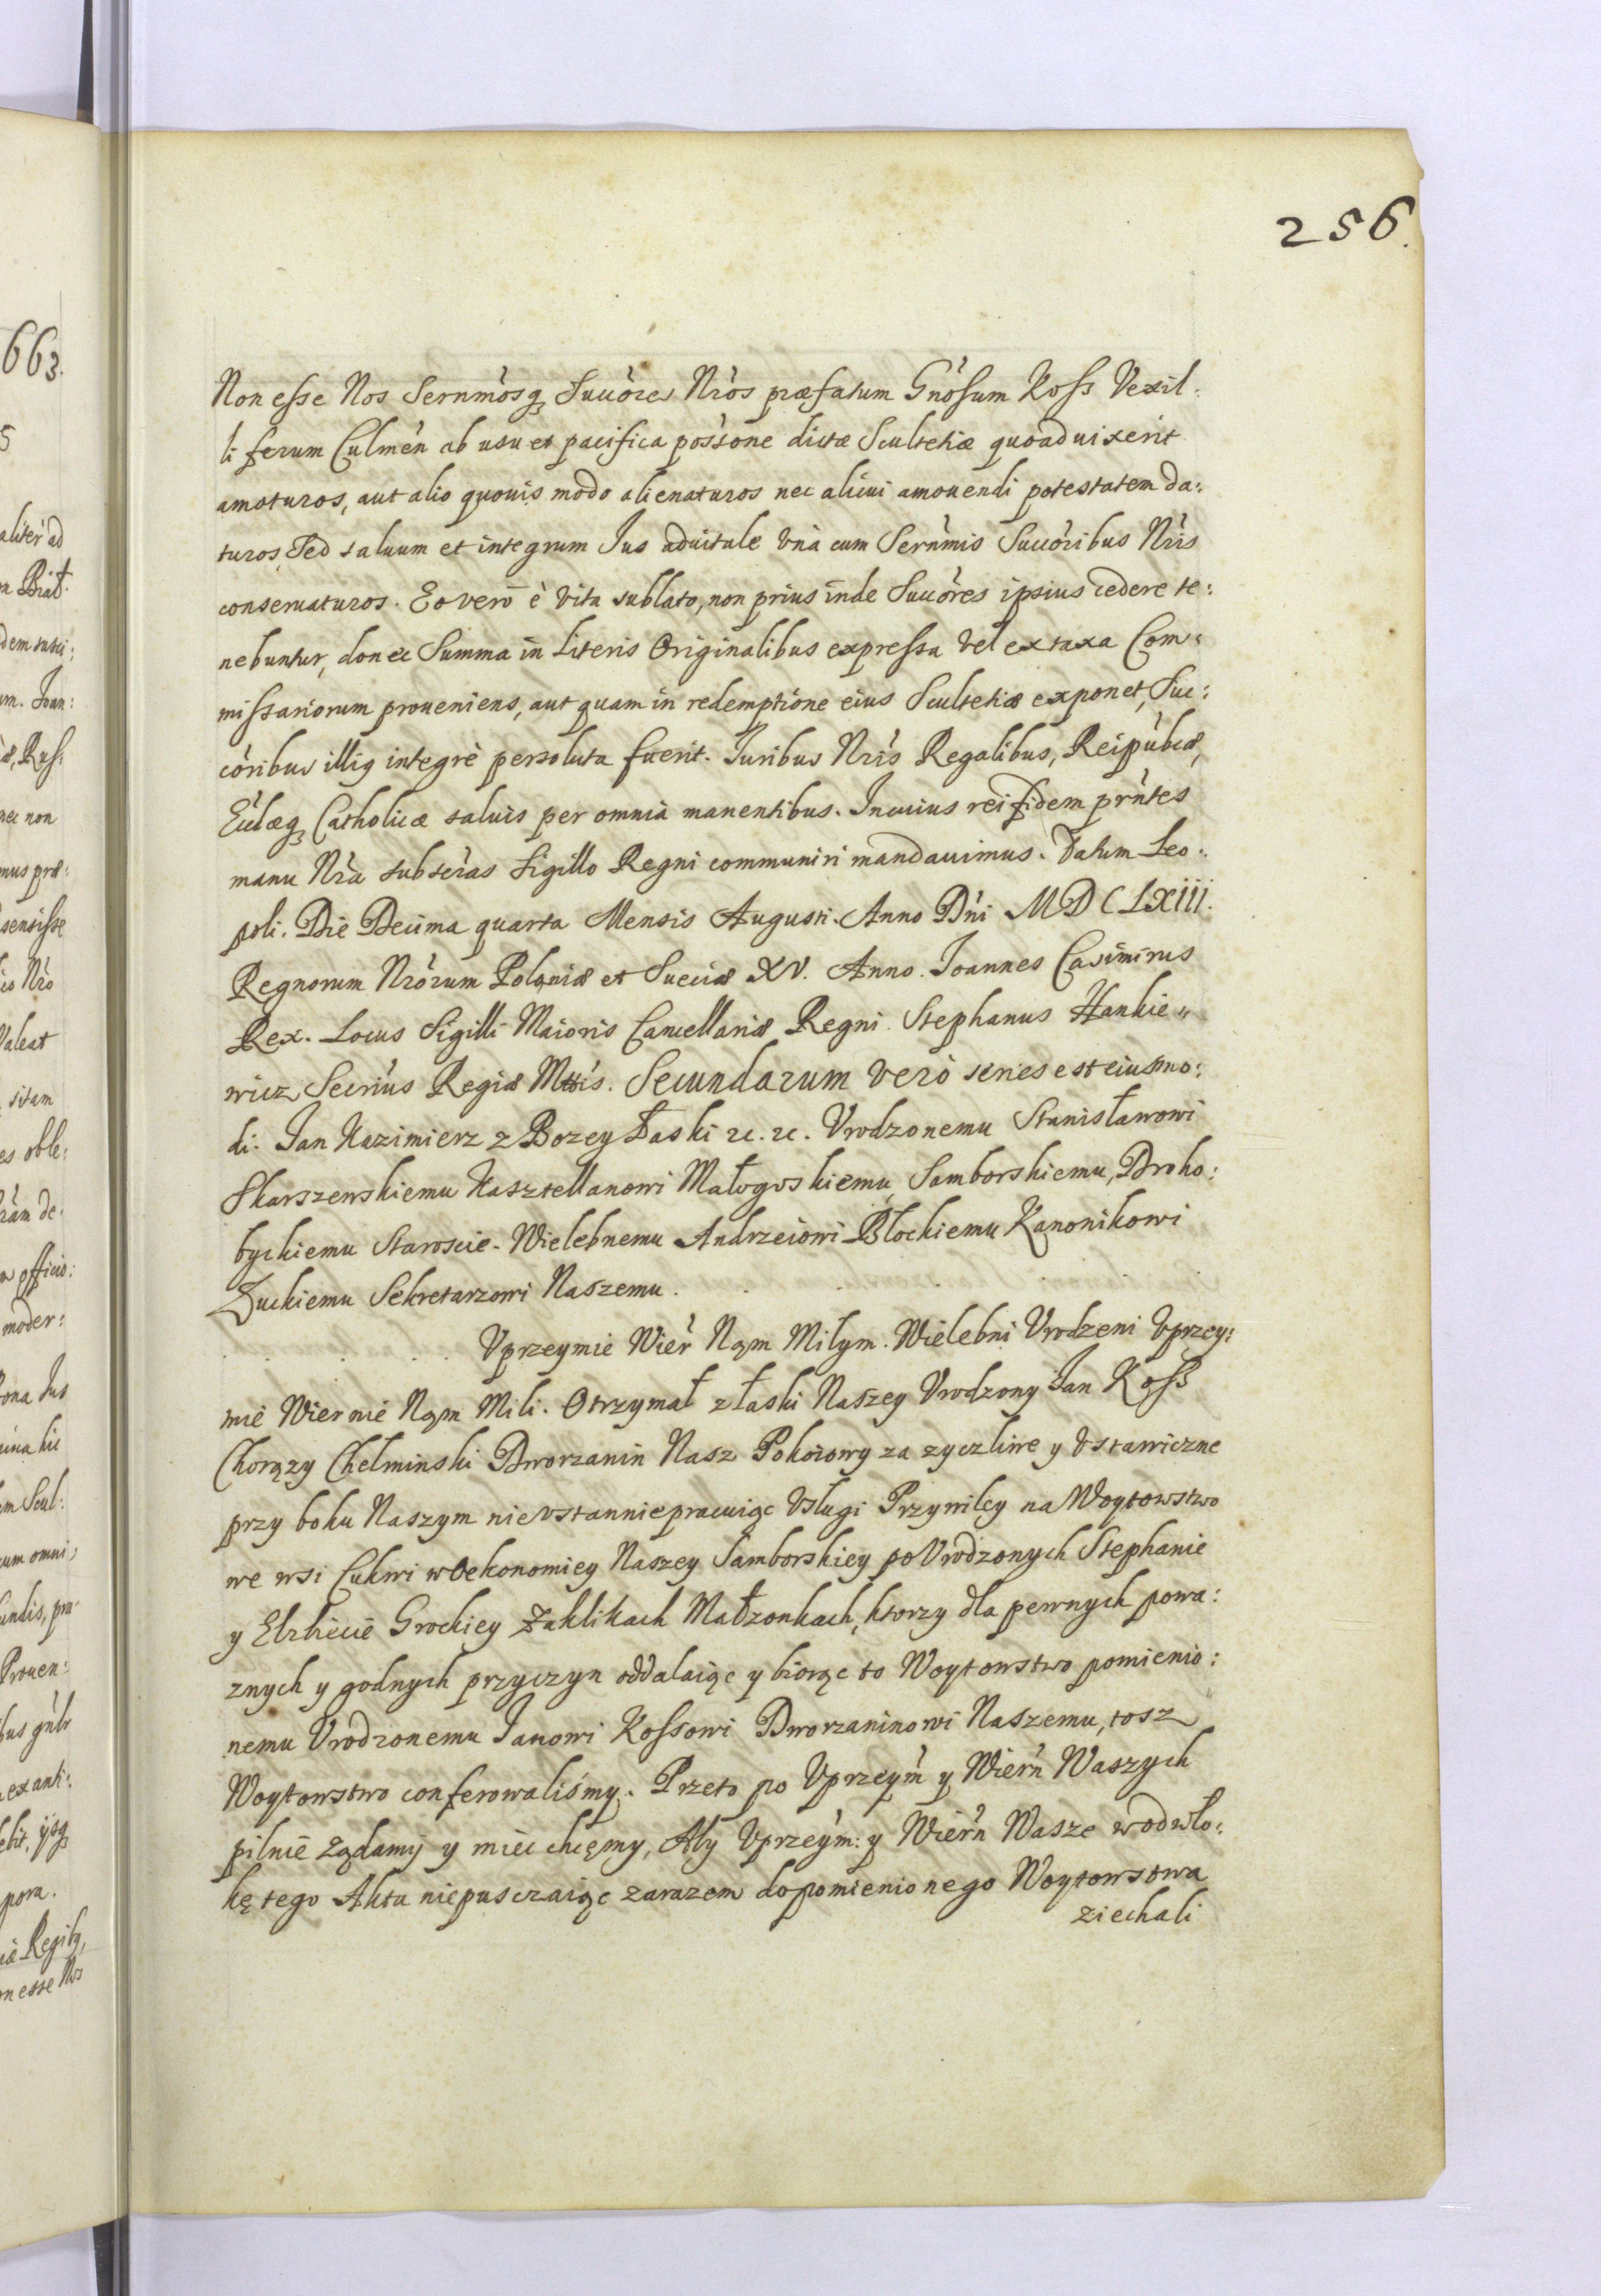 256.
Non esse Nos Sernmosq3 Succòres Nròs præfatum Gnòsum Koss Vexil:
liferum Culmeń ab usu et pacifica possòne dictæ Scultetiæ quoad uixerit
amoturos, aut alio quouis modo alienaturos nec alicui amouendi potestatem da:
turos, Sed saluum et integrum Jus aduitale Vnà cum Sernmis Succòribus Nrìs
conseruaturos. Eo verò è vita sublato, non prius inde Succòres ipsius cedere te:
nebuntur, donec Summa in Literis Originalibus expressa vel ex taxa Com:
missariorum proueniens, aut quam in redemptione eius Scultetiæ exponet, Suc:
còribus illiq integrè persoluta fuerit. Juribus Nrìs Regalibus, Reipùbcæ,
Ecclæq3 Catholicæ saluis per omnia manentibus. In cuius rei fidem prntes
manu Nrà subscras Sigillo Regni communiri mandauimus. Datum Leo:
poli. Die Decima quarta Mensis Augusti. Anno Dni MDCLXIII.
Regnorum Nròrum Poloniæ et Sueciæ XV. Anno. Joannes Casimirus
Rex. Locus Sigilli Maioris Cancellariæ Regni. Stephanus Hankie„
wicz Secrius Regiæ Mttis. Secundarum verò series est eiusmo:
di. Jan Kazimierz z Bozey Łaski &c. &c. Vrodzonemu Stanisławowi
Skarszewskiemu Kasztellanowi Małogoskiemu, Samborskiemu, Droho:
byckiemu Staroscie. Wielebnemu Andrzeiowi Błockiemu Kanonikowi
Łuckiemu Sekretarzowi Naszemu.
Vprzeymie Wier Nąm Miłym. Wielebni Vrodzeni Vprzey:
mie Wiernie Nąm Mili. Otrzymał z łaski Naszey Vrodzony Jan Koss
Chorązy Chełminski Dworzanin Nasz Pokoiowy za zyczliwe y Vstawiczne
przy boku Naszym nievstannie pracuiąc Vsługi Przywiley na Woytowstwo
we wsi Cukwi w Oekonomiey Naszey Samborskiey po Vrodzonych Stephanie
y Elzbiecie Grockiey Zaklikach Małzonkach, ktorzy dla pewnych powa:
znych y godnych przyczyn oddalaiąc y biorąc to Woytowstwo pomienio:
nemu Vrodzonemu Janowi Kossowi Dworzaninowi Naszemu, tosz
Woytowstwo conferowaliśmy. Przeto po Vprzeym y Wiern Waszych
pilnie Ządamy y miec chcęmy, Aby Vprzeym: y Wiern Wasze w odwło:
kę tego Aktu niepusczaiąc zarazem do pomienionego Woytowstwa
ziechali